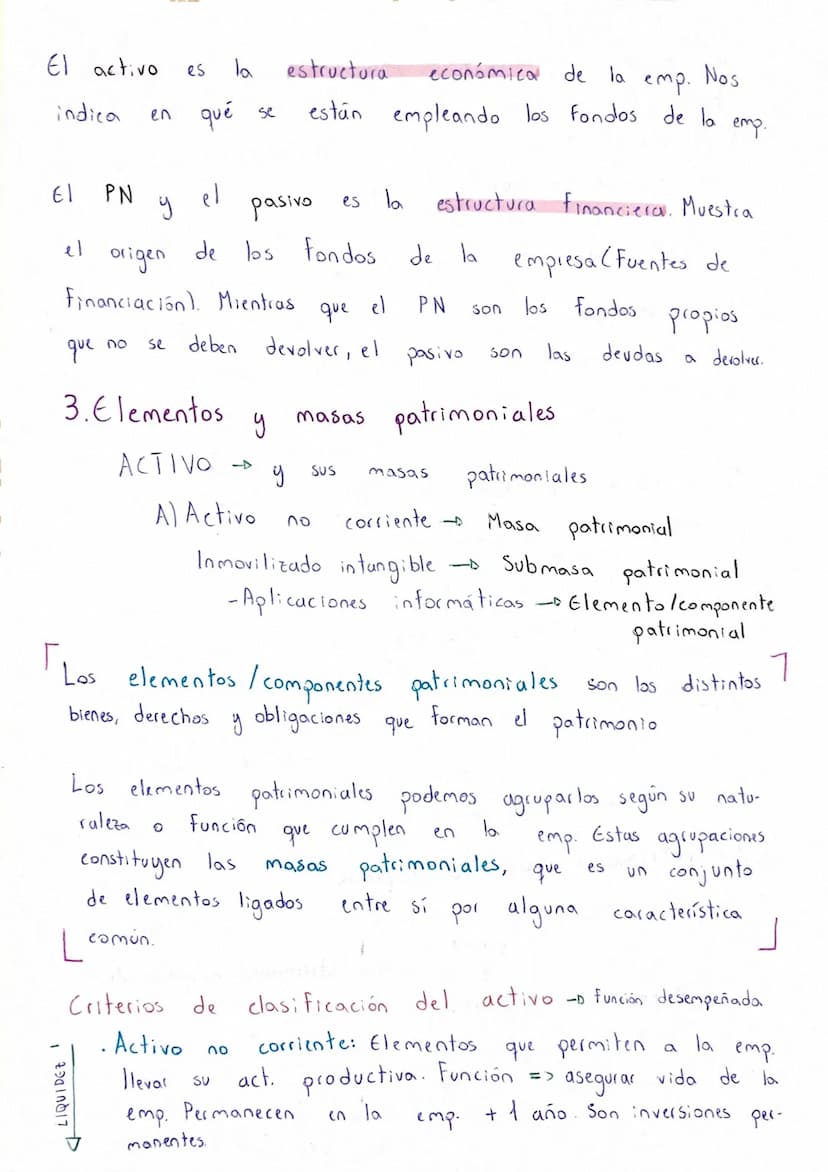 El activo es la estructura económica de la emp. Nos
indica en qué se están empleando los fondos de la emp.
El PN y el pasivo es la estructura financiera. Muestra
el origen de los fondos de la empresa (Fuentes de
Financiación). Mientras que el PN son los fondos propios
que no se deben devolver, el pasivo son las deudas a devolver.
3. Elementos y masas patrimoniales
ACTIVO → y sus masas patrimoniales
A) Activo no corriente → Masa patrimonial
Inmovilizado intangible → Submasa patrimonial
- Aplicaciones informáticas → Elemento/componente
patrimonial
Los elementos/componentes patrimoniales son los distintos
bienes, derechos y obligaciones que forman el patrimonio
Los elementos patrimoniales podemos agruparlos según su natu-
raleza o función que cumplen en la emp. Estas agrupaciones
constituyen las masas patrimoniales, que es un conjunto
de elementos ligados entre sí por alguna característica
común.
Criterios de clasificación del activo → función desempeñada
· Activo no corriente: Elementos que permiten a la emp.
llevar su act. productiva. Función => asegurar vida de la
emp. Permanecen en la emp. + 1 año. Son inversiones per-
manentes.
- LIQUIDEZ